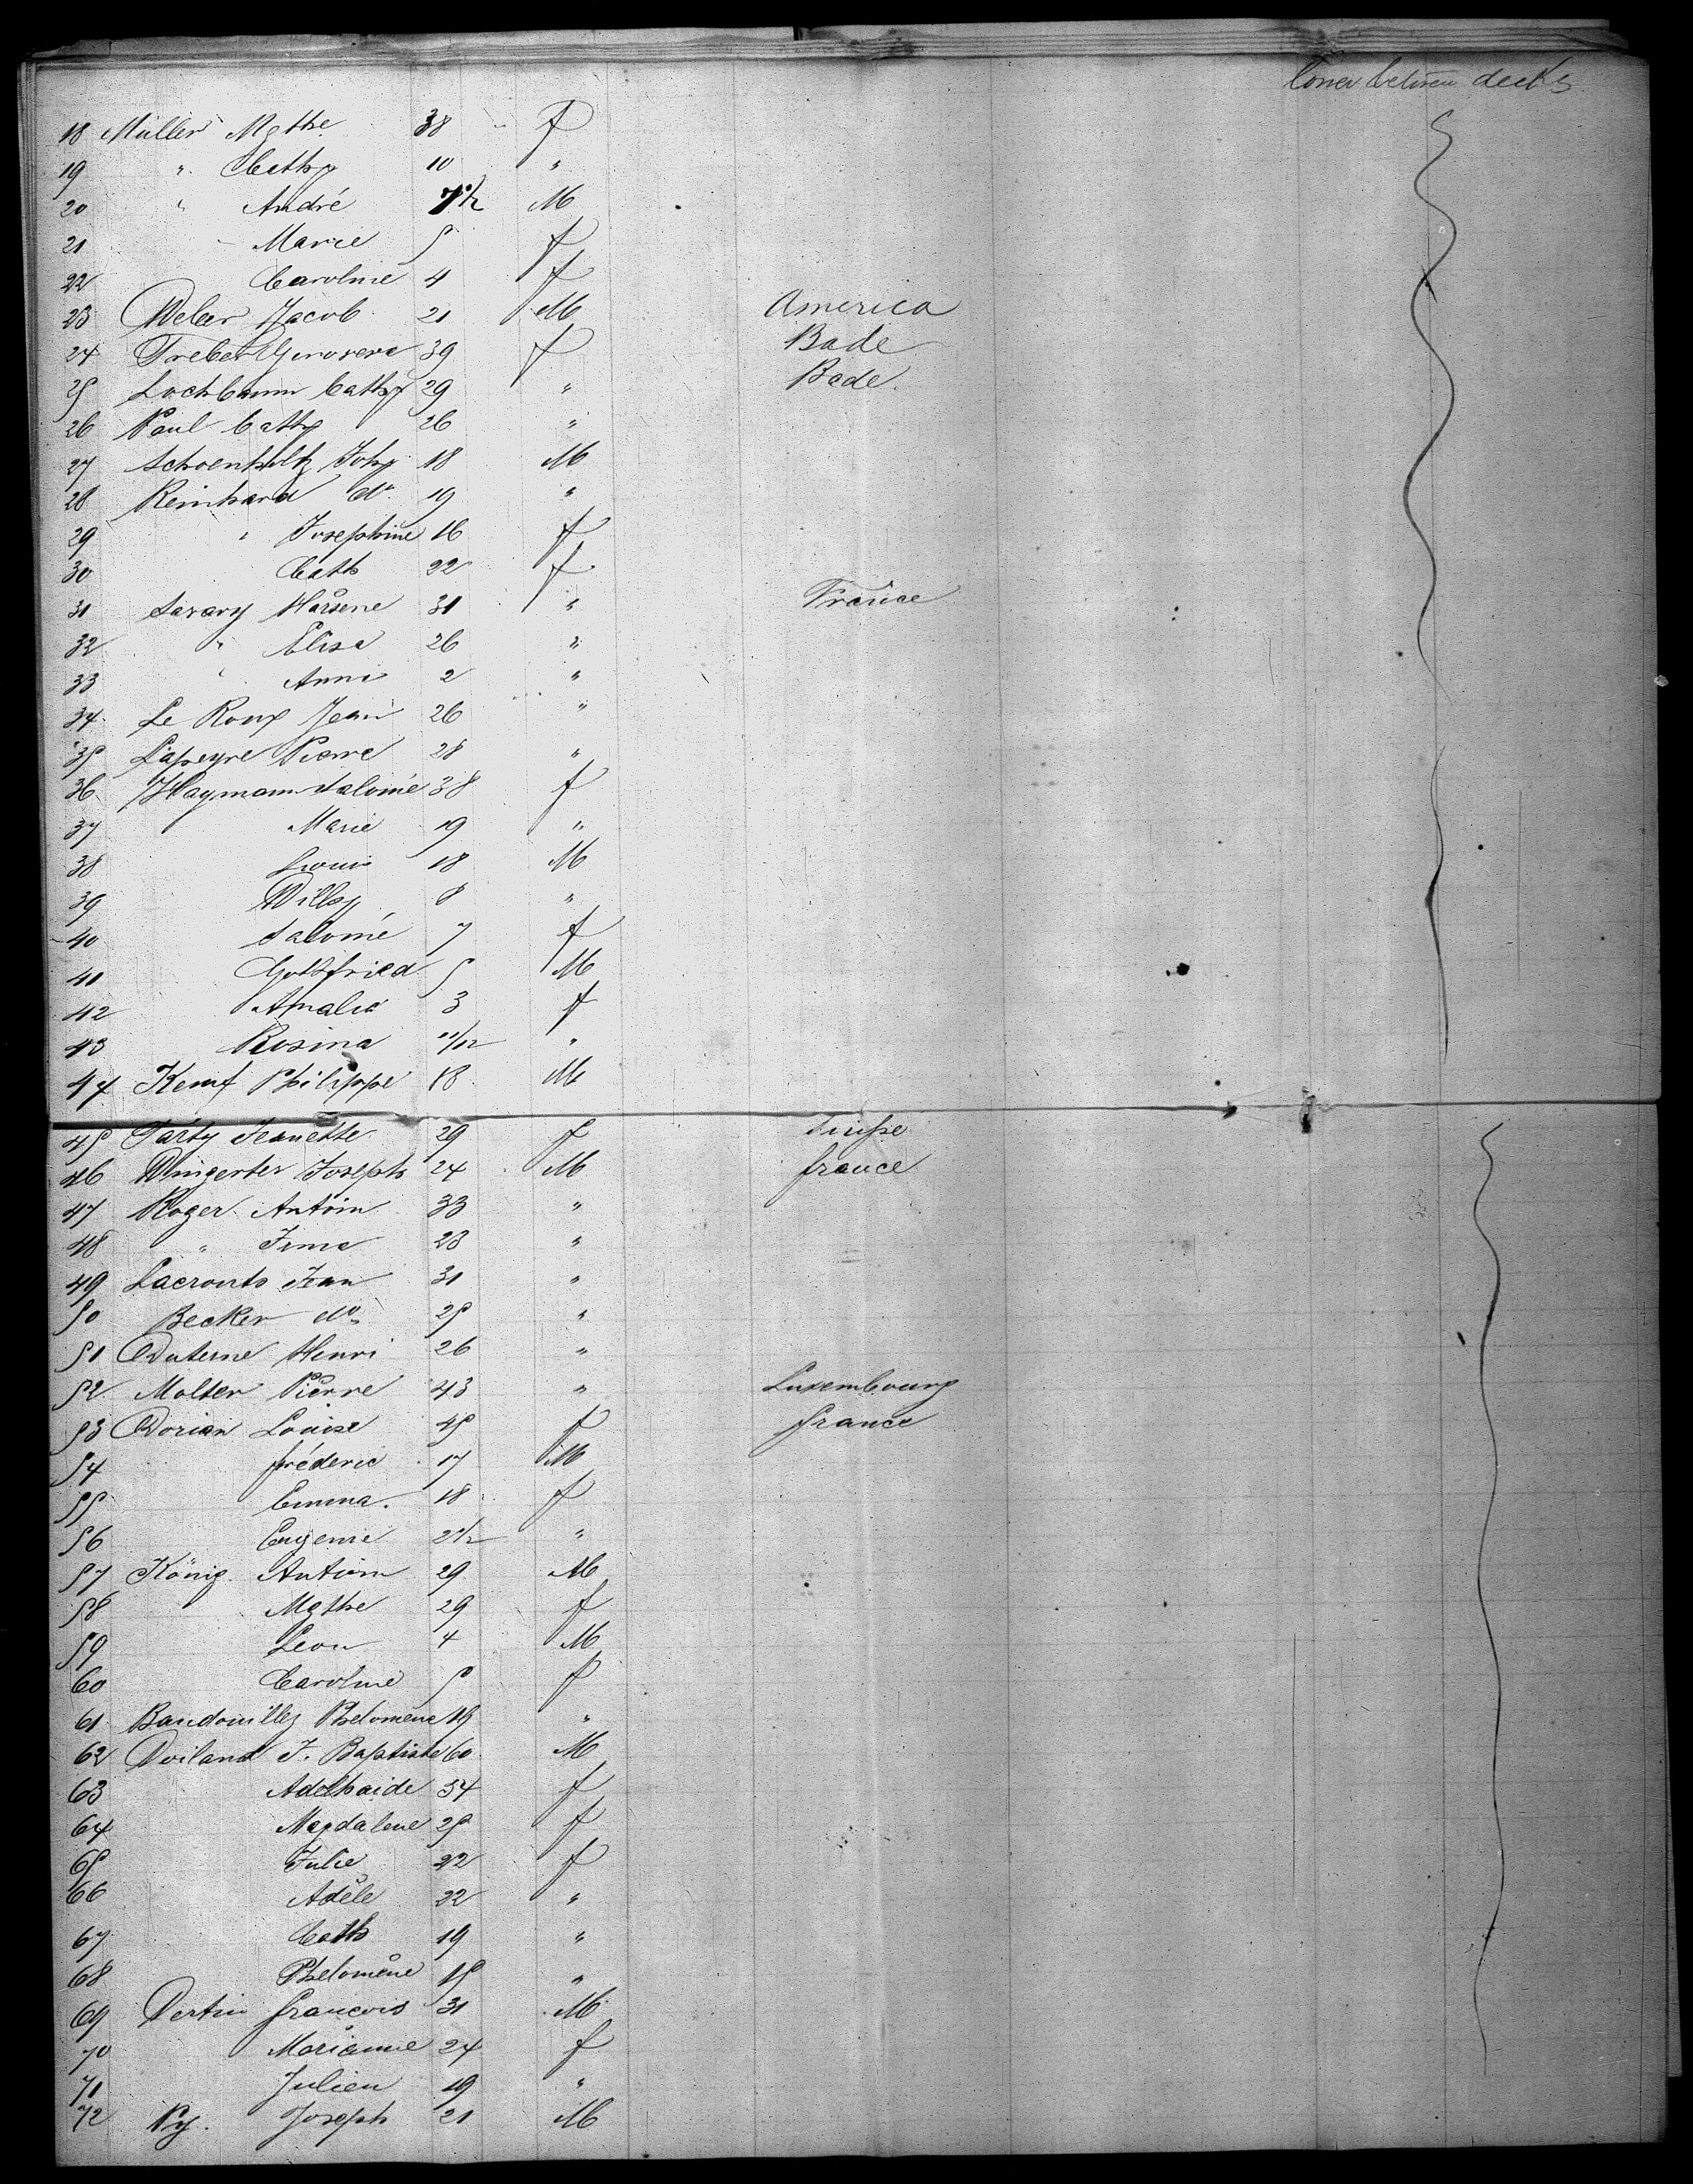 Lower between decks
18 Müller Mgthe 38 f
19 " Cathy 10 "
20 " André 7 1/2 M
21 " Marie 5 f
22 Caroline 4 f
23 Weber Jacob 21 M America
24 Treber Genoveve 39 f Bade
25 Lochbaum Cathy 29 " Bade.
26 Paul Cathy 26 "
27 Schoenholtz Johy 18 M
28 Reinhard do. 19 "
29 " Josephine 16 f
30 Cath 22 f
31 Savary Harsene 31 " France
32 " Elisa 26 "
33 " Anni 2 "
34 Le Roux Jean 26 "
35 Lapeyre Pierre 28 "
36 Haymann Salomé 38 f
37 Marie 19 "
38 Louis 18 M
39 Willy 8 "
40 Salomé 7 f
41 Gottfried 5 M
42 Amalia 3 f
43 Rosina 11/12 "
44 Kemf Philippe 18 M
45 Party Jeanette 29 f Suisse
46 Wingerter Joseph 24 M france
47 Roger Antoin 33 "
48 " Irma 23 "
49 Lacrouts Jean 31 "
50 Becker do 25 "
51 Duterne Henri 26 "
52 Molter Pierre 43 " Luxembourg
53 Dorian Louise 45 f france
54 fréderic 17 M
55 Emma. 18 f
56 Eugenie 2 1/2 "
57 König Antoin 29 M
58 Mgthe 29 f
59 Leon 4 M
60 Caroline 5 f
61 Baudouilley Phelomène 19 "
62 Voiland J. Baptiste 60 M
63 Adelhaide 54 f
64 Magdalene 25 f
65 Julie 22 f
66 Adèle 22 "
67 Cath 19 "
68 Phelomène 15 "
69 Pertin francois 31 M
70 Marianne 24 f
71 Julien 19 "
72 Py. Joseph 21 M